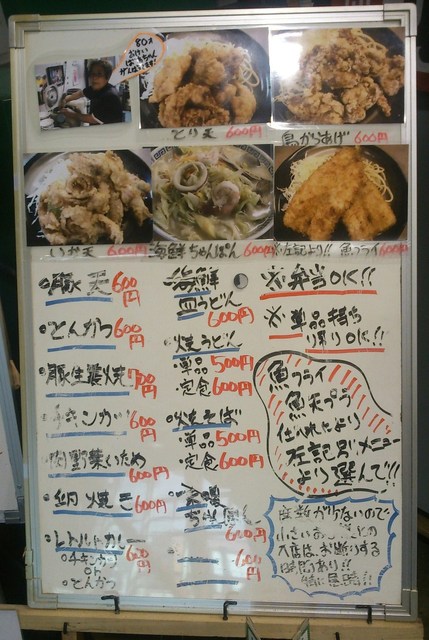 80才
とり天 600円
鳥からあげ 600円
いか天 600円
海鮮ちゃんぽん 600円
※左記より!! 魚フライ 600円
豚天 600円
とんかつ 600円
豚生姜焼 700円
チキンカツ 600円
肉野菜いため 600円
卵焼き 600円
レトルトカレー 600円
チキンカツ
or
とんかつ
海鮮
皿うどん
600円
焼うどん
単品 500円
定食 600円
焼そば
単品 500円
定食 600円
600円
600円
※弁当OK!!
※単品持ち
帰りOK!!
魚フライ
魚天プラ
仕入れにより
左記別メニュー
より選んで!!
座数が少ないので
小さいお
入店は、お断りする
時間あり!!